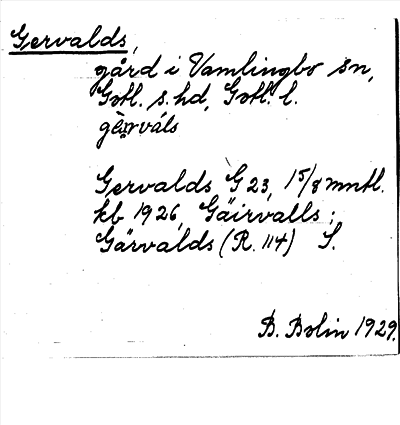 Gervalds,
gård i Vamlingbo sn,
Gotl. s. hd, Gotl. l.
Gervalds G 23, 15/8 mntl.
kb 1926, Gäirvalls;
Gärvalds (R. 114) S.
B. Bolin 1929.